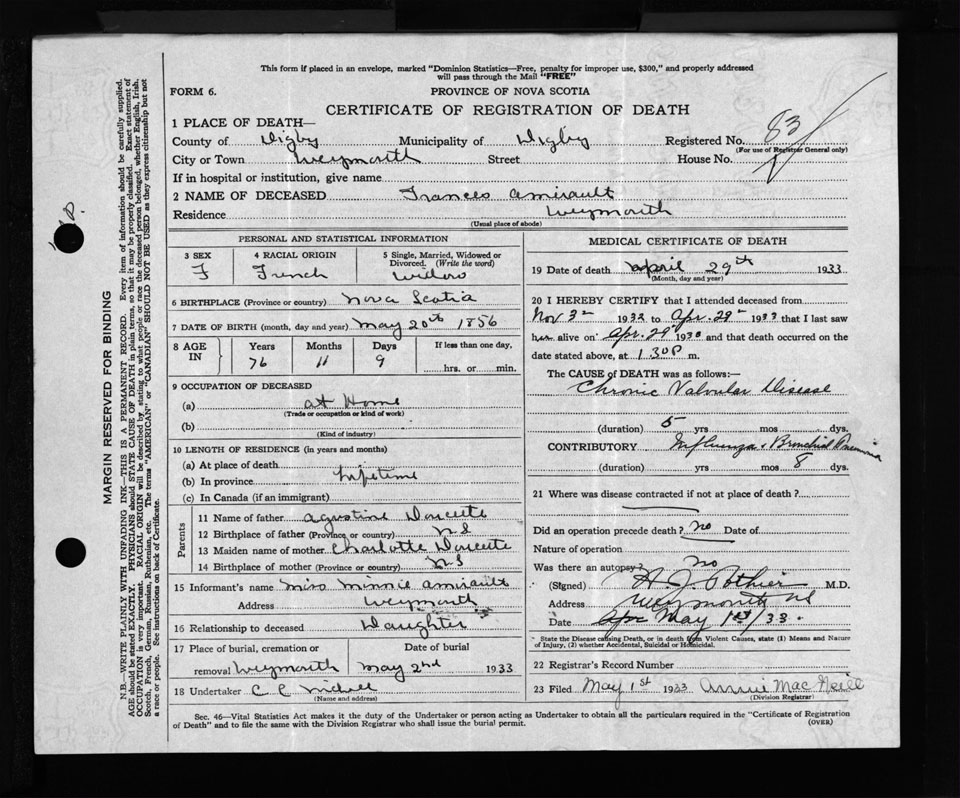 This form if placed in an envelope, marked "Dominion Statistics—Free, penalty for improper use, $300," and properly addressed
will pass through the Mail "FREE"
FORM 6.
PROVINCE OF NOVA SCOTIA
CERTIFICATE OF REGISTRATION OF DEATH
1 PLACE OF DEATH—
County of Digby Municipality of Digby Registered No. 83
(For use of Registrar General only)
City or Town Weymouth Street House No.
If in hospital or institution, give name
2 NAME OF DECEASED Frances Amirault
Residence Weymouth
(Usual place of abode)
PERSONAL AND STATISTICAL INFORMATION
3 SEX 4 RACIAL ORIGIN 5 Single, Married, Widowed or
Divorced. (Write the word)
F French Widow
6 BIRTHPLACE (Province or country) Nova Scotia
7 DATE OF BIRTH (month, day and year) May 20th 1856
8 AGE IN Years Months Days If less than one day,
76 11 9 hrs. or min.
9 OCCUPATION OF DECEASED
(a) at Home
(Trade or occupation or kind of work)
(b)
(Kind of industry)
10 LENGTH OF RESIDENCE (in years and months)
(a) At place of death
(b) In province Lifetime
(c) In Canada (if an immigrant)
Parents
11 Name of father Agustine Doucette
12 Birthplace of father (Province or country) NS
13 Maiden name of mother Charlotte Doucette
14 Birthplace of mother (Province or country) NS
15 Informant's name Miss Minnie Amirault
Address Weymouth
16 Relationship to deceased Daughter
17 Place of burial, cremation or Date of burial
removal Weymouth May 2nd 1933
18 Undertaker C C
(Name and address)
MEDICAL CERTIFICATE OF DEATH
19 Date of death April 29th 1933
(Month, day and year)
20 I HEREBY CERTIFY that I attended deceased from
Nov 1932 to Apr. 29th 1933 that I last saw
her alive on Apr. 29th 193 and that death occurred on the
date stated above, at 1 30 P m.
The CAUSE of DEATH was as follows:—
Chronic Valvular Disease
(duration) 5 yrs mos dys.
CONTRIBUTORY Influenza & Bronchial Pneumonia
(duration) yrs mos 8 dys.
21 Where was disease contracted if not at place of death?
Did an operation precede death? No Date of
Nature of operation
Was there an autopsy? No
(Signed) A J. Pothier M.D.
Address Weymouth NS
Date Apr May 1st/33.
State the Disease causing Death, or in death from Violent Causes, state (1) Means and Nature
of Injury, (2) whether Accidental, Suicidal or Homicidal.
22 Registrar's Record Number
23 Filed May 1st 1933 Annie MacNeill
(Division Registrar)
Sec. 46—Vital Statistics Act makes it the duty of the Undertaker or person acting as Undertaker to obtain all the particulars required in the "Certificate of Registration
of Death" and to file the same with the Division Registrar who shall issue the burial permit.
(OVER)
MARGIN RESERVED FOR BINDING
N.B.—WRITE PLAINLY WITH UNFADING INK—THIS IS A PERMANENT RECORD. Every item of information should be carefully supplied.
AGE should be stated EXACTLY. PHYSICIANS should STATE CAUSE OF DEATH in plain terms, so that it may be properly classified. Exact statement of
OCCUPATION is very important. RACIAL ORIGIN will be described by stating to what people or race the deceased person belonged, whether English, Irish,
Scotch, French, German, Russian, Ruthenian, etc. The terms "AMERICAN" or "CANADIAN" SHOULD NOT BE USED as they express citizenship but not
a race or people. See instructions on back of Certificate.